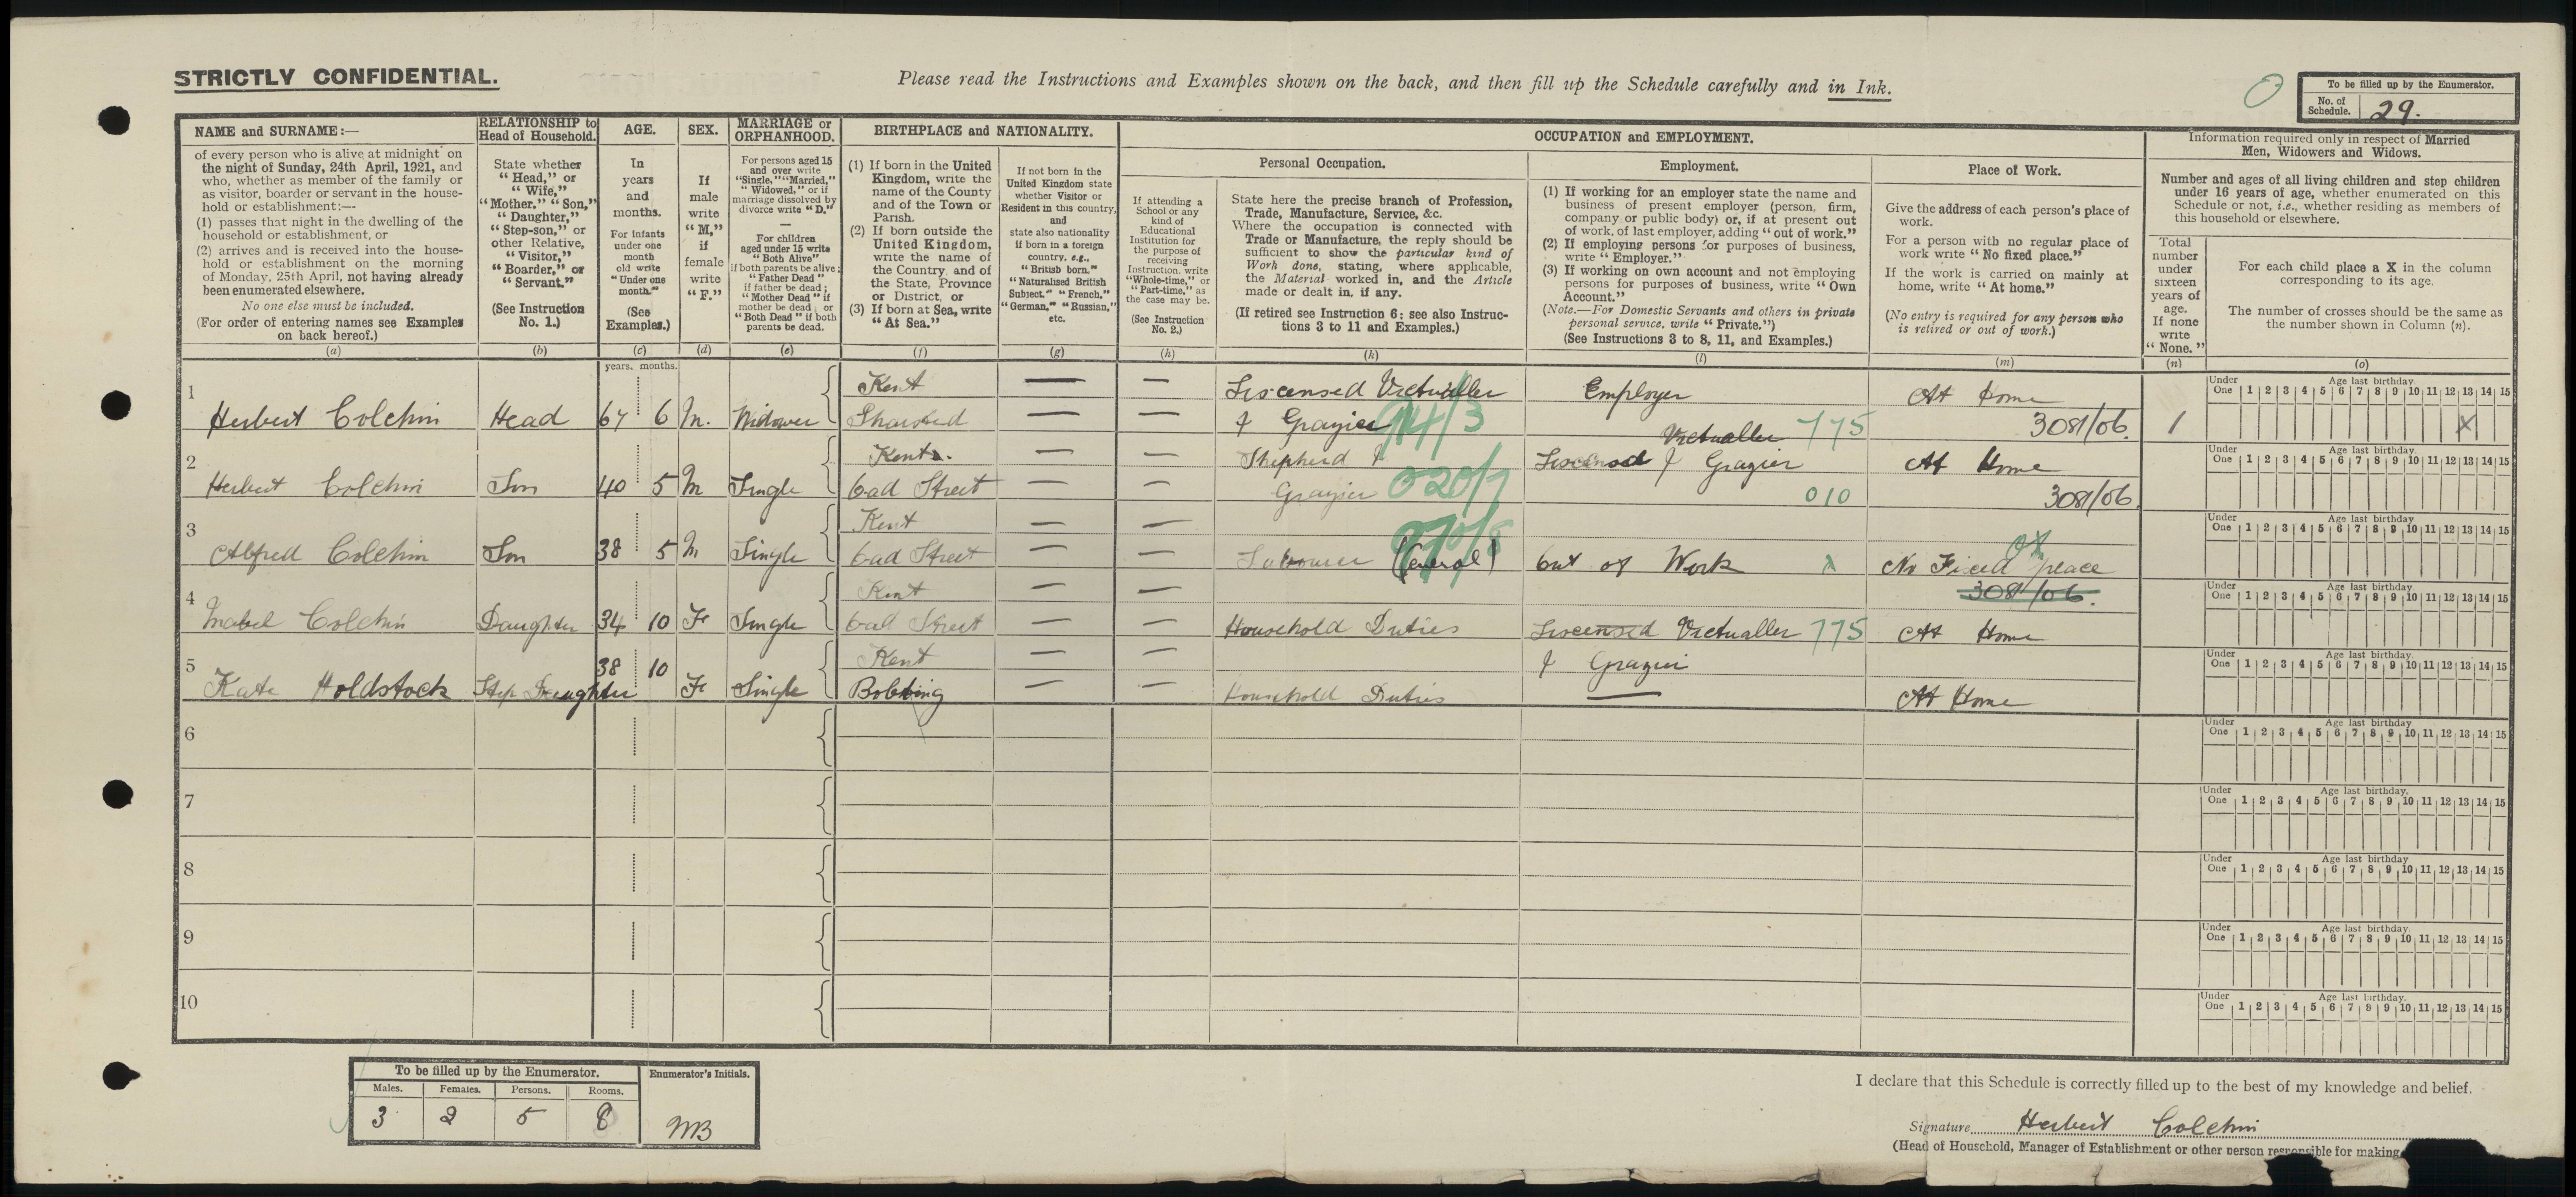 STRICTLY CONFIDENTIAL.
Please read the Instructions and Examples shown on the back, and then fill up the Schedule carefully and in Ink.
To be filled up by the Enumerator.
No. of Schedule. 29.
NAME and SURNAME:—
of every person who is alive at midnight on
the night of Sunday, 24th April, 1921, and
who, whether as member of the family or
as visitor, boarder or servant in the house-
hold or establishment:—
(1) passes that night in the dwelling of the
household or establishment, or
(2) arrives and is received into the house-
hold or establishment on the morning
of Monday, 25th April, not having already
been enumerated elsewhere.
No one else must be included.
(For order of entering names see Examples
on back hereof.)
(a)
RELATIONSHIP to
Head of Household.
State whether
"Head," or
"Wife,"
"Mother," "Son,"
"Daughter,"
"Step-son," or
other Relative,
"Visitor,"
"Boarder," or
"Servant."
(See Instruction
No. 1.)
(b)
AGE.
In
years
and
months.
For infants
under one
month
old write
"Under one
month."
(See
Examples.)
(c)
SEX.
If
male
write
"M,"
if
female
write
"F."
(d)
MARRIAGE or
ORPHANHOOD.
For persons aged 15
and over write
"Single," "Married,"
"Widowed," or if
marriage dissolved by
divorce write "D."
—
For children
aged under 15 write
"Both Alive"
if both parents be alive;
"Father Dead"
if father be dead;
"Mother Dead" if
mother be dead; or
"Both Dead" if both
parents be dead.
(e)
BIRTHPLACE and NATIONALITY.
(1) If born in the United
Kingdom, write the
name of the County
and of the Town or
Parish.
(2) If born outside the
United Kingdom,
write the name of
the Country, and of
the State, Province
or District, or
(3) If born at Sea, write
"At Sea."
(f)
If not born in the
United Kingdom state
whether Visitor or
Resident in this country,
and
state also nationality
if born in a foreign
country, e.g.,
"British born,"
"Naturalised British
Subject," "French,"
"German," "Russian,"
etc.
(g)
OCCUPATION and EMPLOYMENT.
If attending a
School or any
kind of
Educational
Institution for
the purpose of
receiving
Instruction, write
"Whole-time," or
"Part-time," as
the case may be.
(See Instruction
No. 2.)
(h)
Personal Occupation.
State here the precise branch of Profession,
Trade, Manufacture, Service, &c.
Where the occupation is connected with
Trade or Manufacture, the reply should be
sufficient to show the particular kind of
Work done, stating, where applicable,
the Material worked in, and the Article
made or dealt in, if any.
(If retired see Instruction 6; see also Instruc-
tions 3 to 11 and Examples.)
(k)
Employment.
(1) If working for an employer state the name and
business of present employer (person, firm,
company or public body) or, if at present out
of work, of last employer, adding "out of work."
(2) If employing persons for purposes of business,
write "Employer."
(3) If working on own account and not employing
persons for purposes of business, write "Own
Account."
(Note.—For Domestic Servants and others in private
personal service, write "Private.")
(See Instructions 3 to 8, 11, and Examples.)
(l)
Place of Work.
Give the address of each person's place of
work.
For a person with no regular place of
work write "No fixed place."
If the work is carried on mainly at
home, write "At home."
(No entry is required for any person who
is retired or out of work.)
(m)
Information required only in respect of Married
Men, Widowers and Widows.
Number and ages of all living children and step children
under 16 years of age, whether enumerated on this
Schedule or not, i.e., whether residing as members of
this household or elsewhere.
Total
number
under
sixteen
years of
age.
If none
write
"None."
(n)
For each child place a X in the column
corresponding to its age.
The number of crosses should be the same as
the number shown in Column (n).
(o)
years. months.
1 Herbert Colchin Head 67 6 M. Widower Kent — — Liscensed Victualler & Grazier 775 Employer At Home 3081/06. 1 X
Under One Age last birthday. 1 2 3 4 5 6 7 8 9 10 11 12 13 14 15
2 Herbert Colchin Son 40 5 M Single Kent. — — Shepherd & Grazier 020/7 Liscensed Victualler & Grazier 010 At Home 3081/06
Under One Age last birthday. 1 2 3 4 5 6 7 8 9 10 11 12 13 14 15
3 Alfred Colchin Son 38 5 M Single Kent — — Labourer (General) Out of Work No Fixed
Under One Age last birthday. 1 2 3 4 5 6 7 8 9 10 11 12 13 14 15
4 Mabel Colchin Daughter 34 10 F Single Kent — — Household Duties Liscensed Victualler & Grazier 775 At Home 3081/06.
Under One Age last birthday. 1 2 3 4 5 6 7 8 9 10 11 12 13 14 15
5 Kate Holdstock Step Daughter 38 10 F Single Kent Bobbing — — Household Duties — At Home
Under One Age last birthday. 1 2 3 4 5 6 7 8 9 10 11 12 13 14 15
6
Under One Age last birthday. 1 2 3 4 5 6 7 8 9 10 11 12 13 14 15
7
Under One Age last birthday. 1 2 3 4 5 6 7 8 9 10 11 12 13 14 15
8
Under One Age last birthday 1 2 3 4 5 6 7 8 9 10 11 12 13 14 15
9
Under One Age last birthday. 1 2 3 4 5 6 7 8 9 10 11 12 13 14 15
10
Under One Age last birthday. 1 2 3 4 5 6 7 8 9 10 11 12 13 14 15
To be filled up by the Enumerator.
Males. Females. Persons. Rooms.
3 2 5 8
Enumerator's Initials.
MB
I declare that this Schedule is correctly filled up to the best of my knowledge and belief.
Signature Herbert Colchin
(Head of Household, Manager of Establishment or other person responsible for making